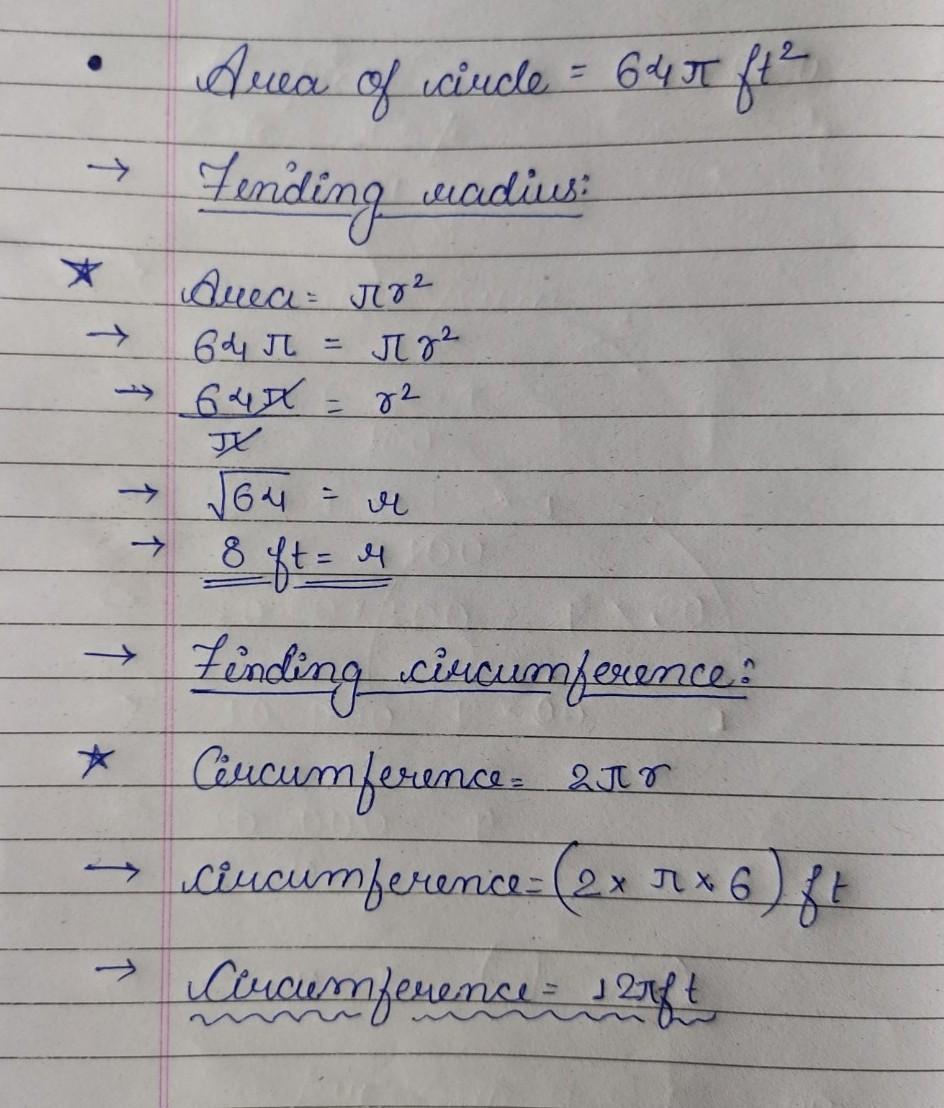 • Area of circle = 64π ft²
→ Finding radius:
★ Area = πr²
→ 64π = πr²
→ 64π = r²
π
→ √64 = r
→ 8 ft = r
→ Finding circumference:
★ Circumference = 2πr
→ circumference = (2 × π × 6) ft
→ Circumference = 12πft